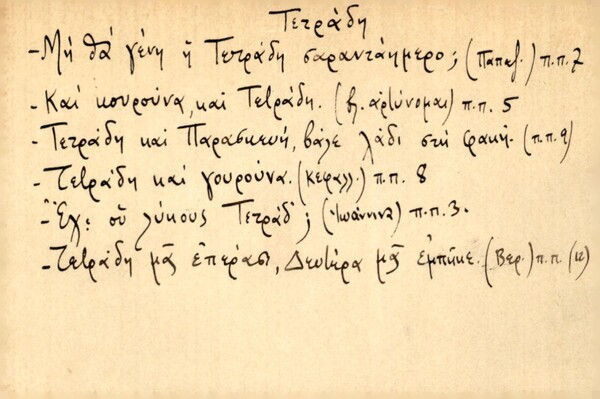 Τετράδη
- Μή θά γένη ἡ Τετράδη σαρανταήμερο; (Παπαζ.) π.π. 7
- Καί κουρούνα, καί Τετράδη. (βλ. ἀρτύνομαι) π.π. 5
- Τετράδη καί Παρασκευή, βάλε λάδι στή φακή. (π.π. 9)
- Τετράδη καί γουρούνα. (Κεφαλλ.) π.π. 8
- Ἔχ' οὑ λύκους Τετράδ'; (Ἰωάννινα) π.π. 3.
- Τετράδη μᾶς ἐπέρασ, Δευτέρα μᾶς ἐμπῆκε. (Βερ.) π.π. (12)